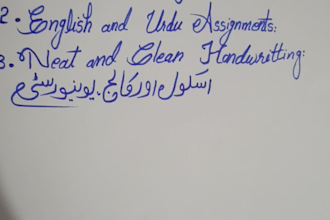 2. English and Urdu Assignments:
3. Neat and Clean Handwritting:
اسکول اور کالج، یونیورسٹی